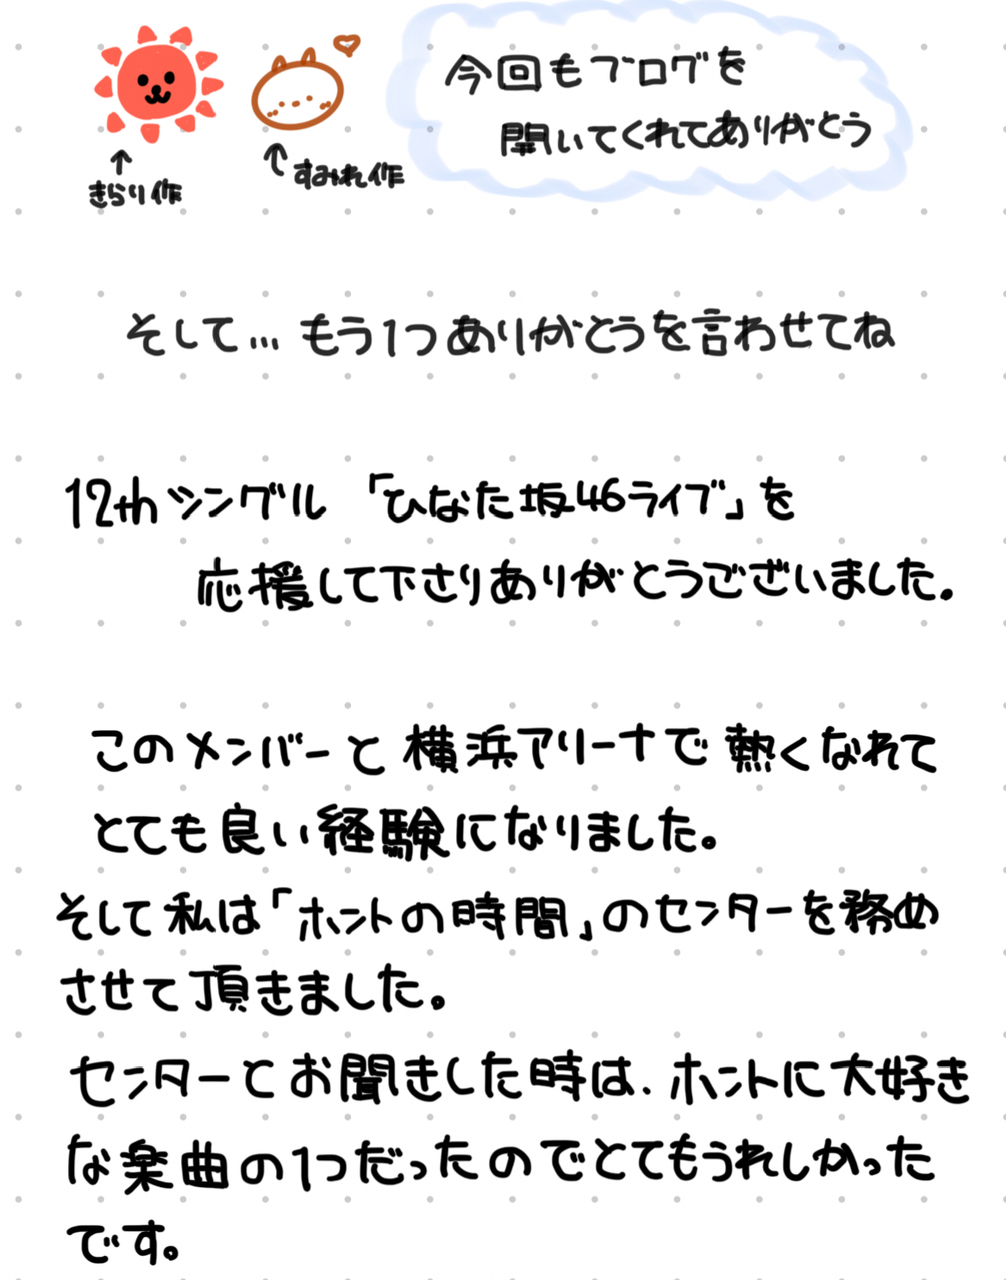 今回もブログを
開いてくれてありがとう
↑
きらり作
↑
すみれ作
そして…もう1つありがとうを言わせてね
12thシングル「ひなた坂46ライブ」を
応援して下さりありがとうございました.
このメンバーと横浜アリーナで熱くなれて
とても良い経験になりました。
そして私は「ホントの時間」のセンターを務め
させて頂きました。
センターとお聞きした時は、ホントに大好き
な楽曲の1つだったのでとてもうれしかった
です。